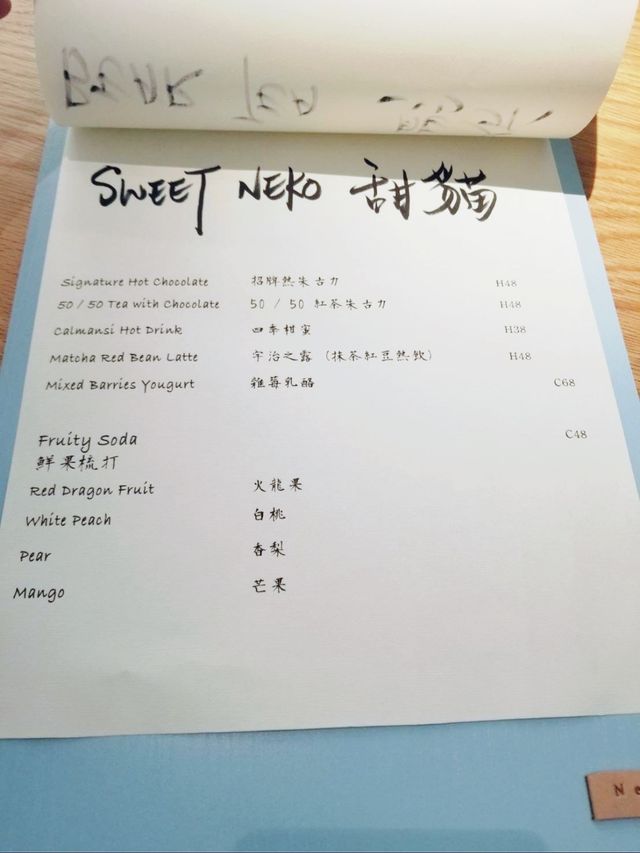 SWEET NEKO 甜貓
Signature Hot Chocolate 招牌熱朱古力 H48
50 / 50 Tea with Chocolate 50 / 50 紅茶朱古力 H48
Calmansi Hot Drink 四季柑蜜 H38
Matcha Red Bean Latte 宇治之露 (抹茶紅豆熱飲) H48
Mixed Barries Yougurt 雜莓乳酪 C68
Fruity Soda C48
鮮果梳打
Red Dragon Fruit 火龍果
White Peach 白桃
Pear 香梨
Mango 芒果
Ne